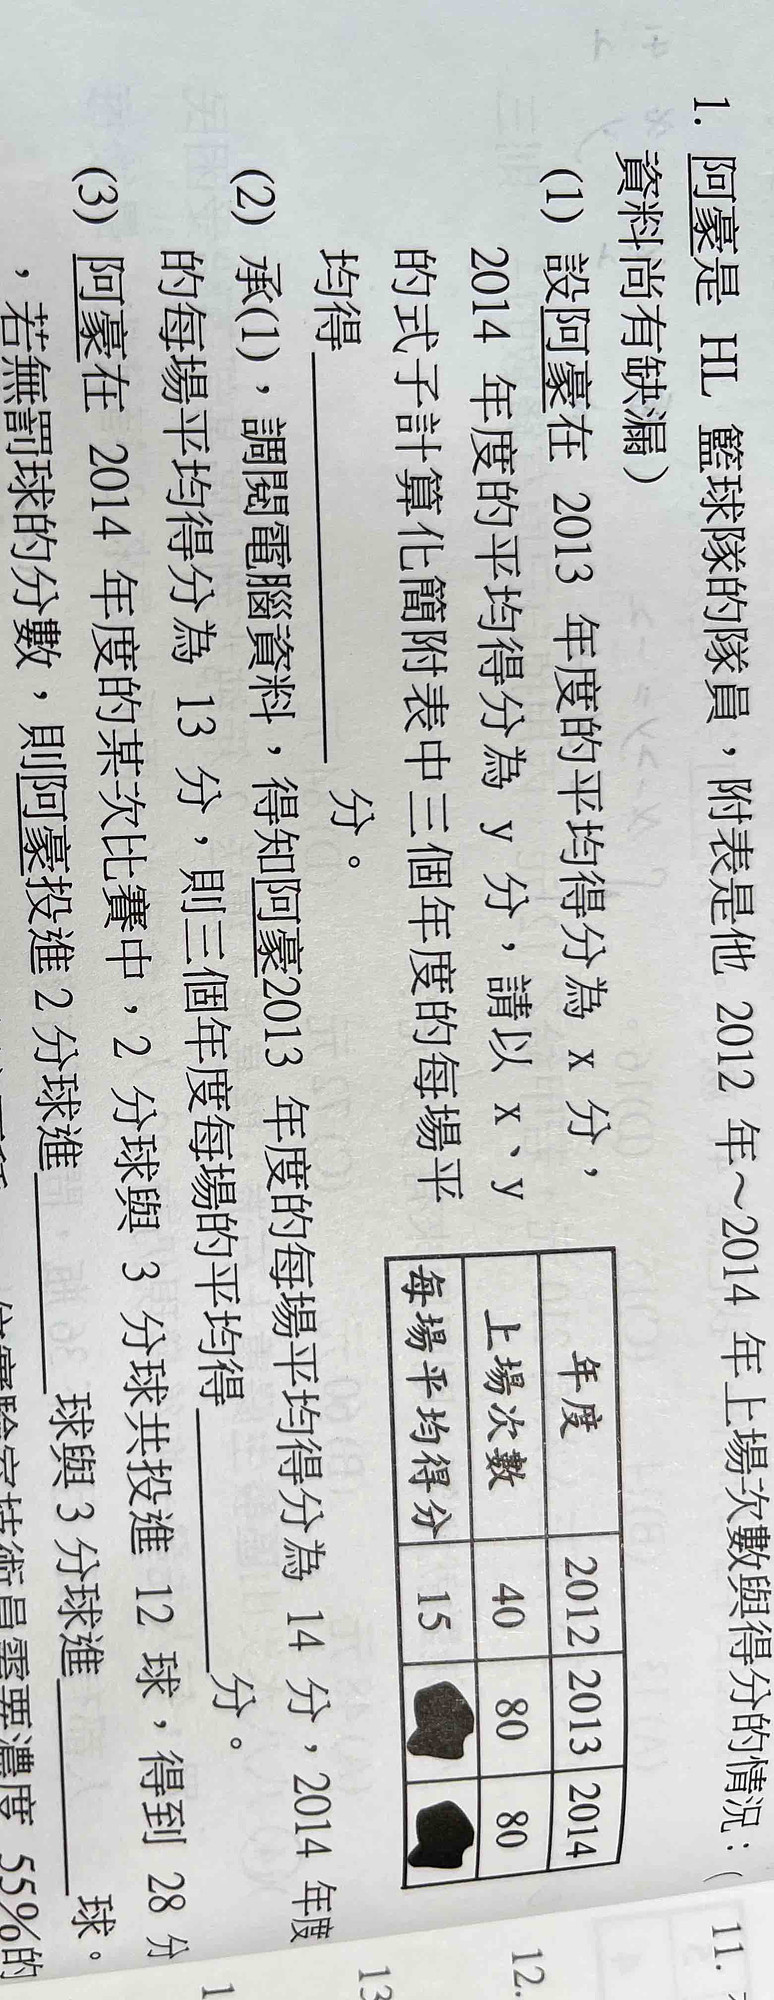 1. 阿豪是 HL 籃球隊的隊員，附表是他 2012 年～2014 年上場次數與得分的情況：（
資料尚有缺漏）
(1) 設阿豪在 2013 年度的平均得分為 x 分，
2014 年度的平均得分為 y 分，請以 x、y
的式子計算化簡附表中三個年度的每場平
均得 分。
年度 2012 2013 2014
上場次數 40 80 80
每場平均得分 15
(2) 承(1)，調閱電腦資料，得知阿豪2013 年度的每場平均得分為 14 分，2014 年度
的每場平均得分為 13 分，則三個年度每場的平均得 分。
(3) 阿豪在 2014 年度的某次比賽中，2 分球與 3 分球共投進 12 球，得到 28 分
，若無罰球的分數，則阿豪投進 2 分球進 球與 3 分球進 球。
實驗室技術員需要濃度 55%的
11.
12.
13
1